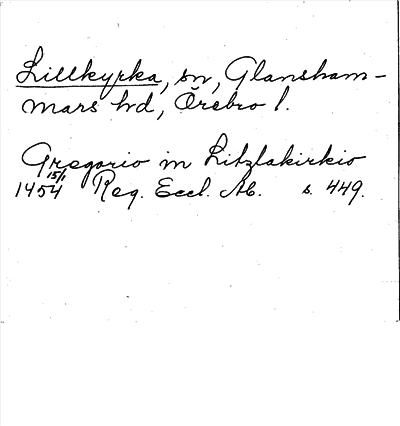 Lillkyrka, sn, Glansham-
mars hd, Örebro l.
Gregorio in Litzlakirkio
15/1
1454 Reg. Eccl. Ab. s. 449.